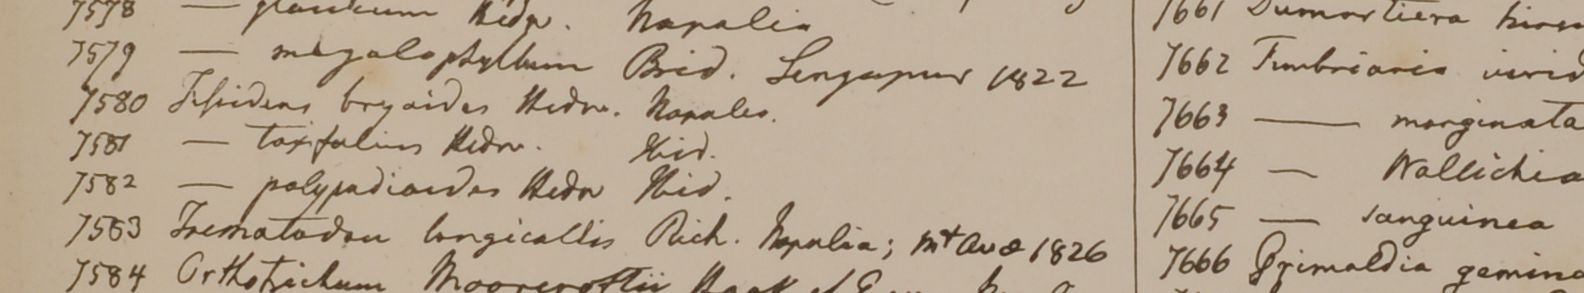 7578 — glaucum Hedw. Napalia
7579 — megalophyllum Brid. Singapur 1822
7580 Fissidens bryoides Hedw. Napalia.
7581 — taxifolius Hedw. Ibid.
7582 — polypodioides Hedw Ibid.
7583 Trematodon longicollis Rich. Napalia; Mt Ava 1826
7584 Orthotrichum Moorcroftii Hook
7661 Dumortiera hirsu
7662 Fimbriaria virid
7663 — marginata
7664 — Wallichia
7665 — sanguinea
7666 Grimaldia gemino